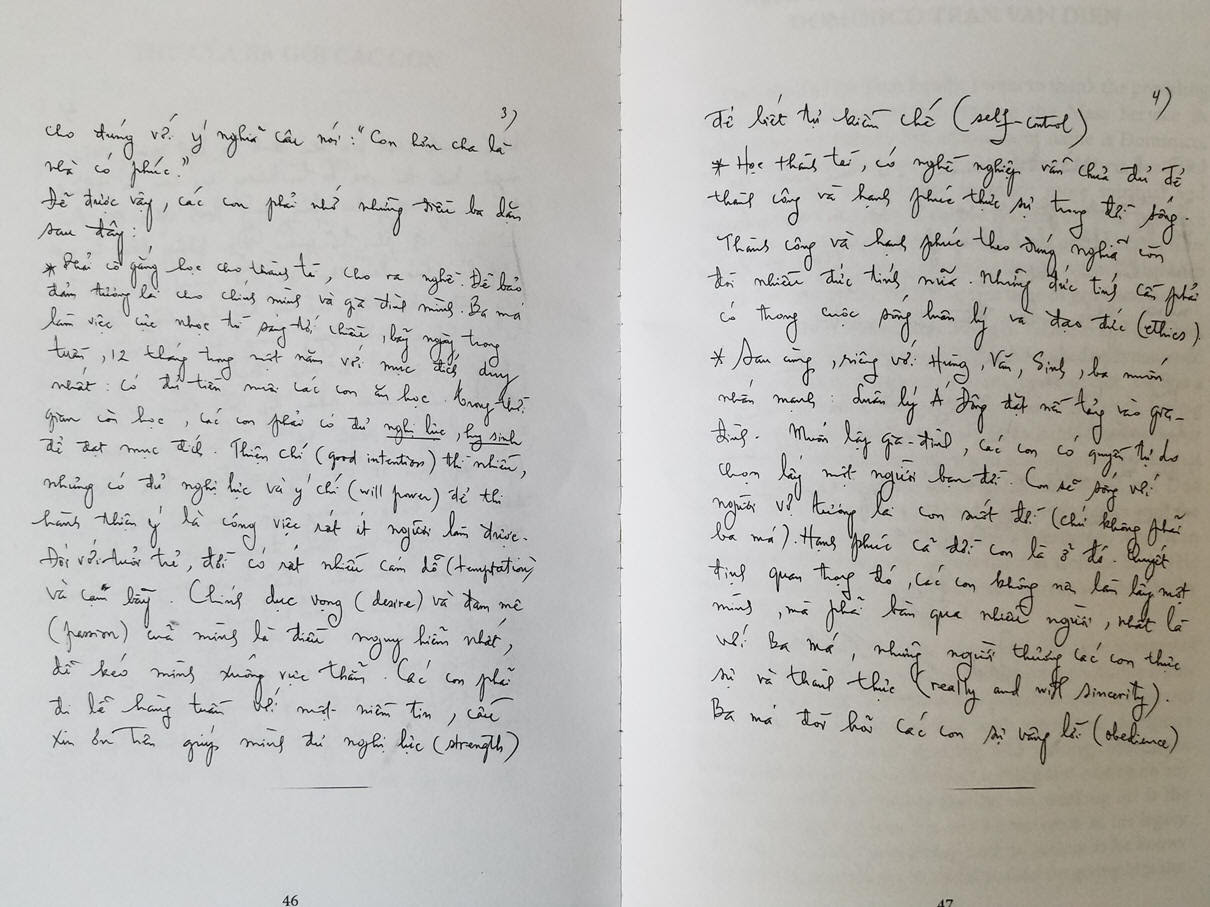 3)
cho đúng với ý nghĩa câu nói: "Con hơn cha là
nhà có phúc."
Để được vậy, các con phải nhớ những điều ba dặn
sau đây:
* Phải cố gắng học cho thành tài, cho ra nghề. Để bảo
đảm tương lai cho chính mình và gia đình mình. Ba má
làm việc cực nhọc từ sáng tới chiều, bẩy ngày trong
tuần, 12 tháng trong một năm với mục đích duy
nhất: có đủ tiền nuôi các con ăn học. Trong thời
gian còn học, các con phải có đủ nghị lực, hy sinh
để đạt mục đích. Thiện chí (good intention) thì nhiều,
nhưng có đủ nghị lực và ý chí (will power) để thi
hành thiên ý là công việc rất ít người làm được.
Đối với tuổi trẻ, đời có rất nhiều cám dỗ (temptation)
và cạm bẫy. Chính dục vọng (desire) và đam mê
(passion) của mình là điều nguy hiểm nhất,
dễ kéo mình xuống vực thẳm. Các con phải
đi lễ hàng tuần với một niềm tin, cầu
xin Ơn Trên giúp mình đủ nghị lực (strength)
46
4)
để biết tự kiềm chế (self-control)
* Học thành tài, có nghề nghiệp vẫn chưa đủ để
thành công và hạnh phúc thực sự trong đời sống.
Thành công và hạnh phúc theo đúng nghĩa còn
đòi nhiều đức tính nữa. Những đức tính cần phải
có trong cuộc sống luân lý và đạo đức (ethics).
* Sau cùng, riêng với Hùng, Văn, Sinh, ba muốn
nhấn mạnh: Luân lý Á Đông đặt nền tảng vào gia-
đình. Muốn lập gia-đình, các con có quyền tự do
chọn lấy một người bạn đời. Con sẽ sống với
người vợ tương lai con suốt đời (chứ không phải
ba má). Hạnh phúc cả đời con là ở đó. Quyết
định quan trọng đó, các con không nên làm lấy một
mình, mà phải bàn qua nhiều người, nhất là
với Ba má, những người thương các con thực
sự và thành thực (really and with sincerity).
Ba má đòi hỏi các con sự vâng lời (obedience)
47